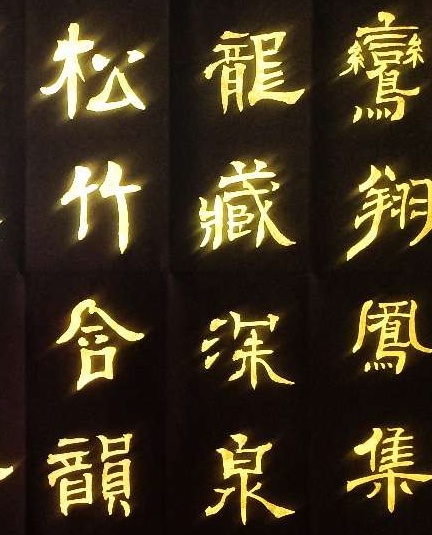 鸞翔鳳集
龍藏深泉
松竹含韻